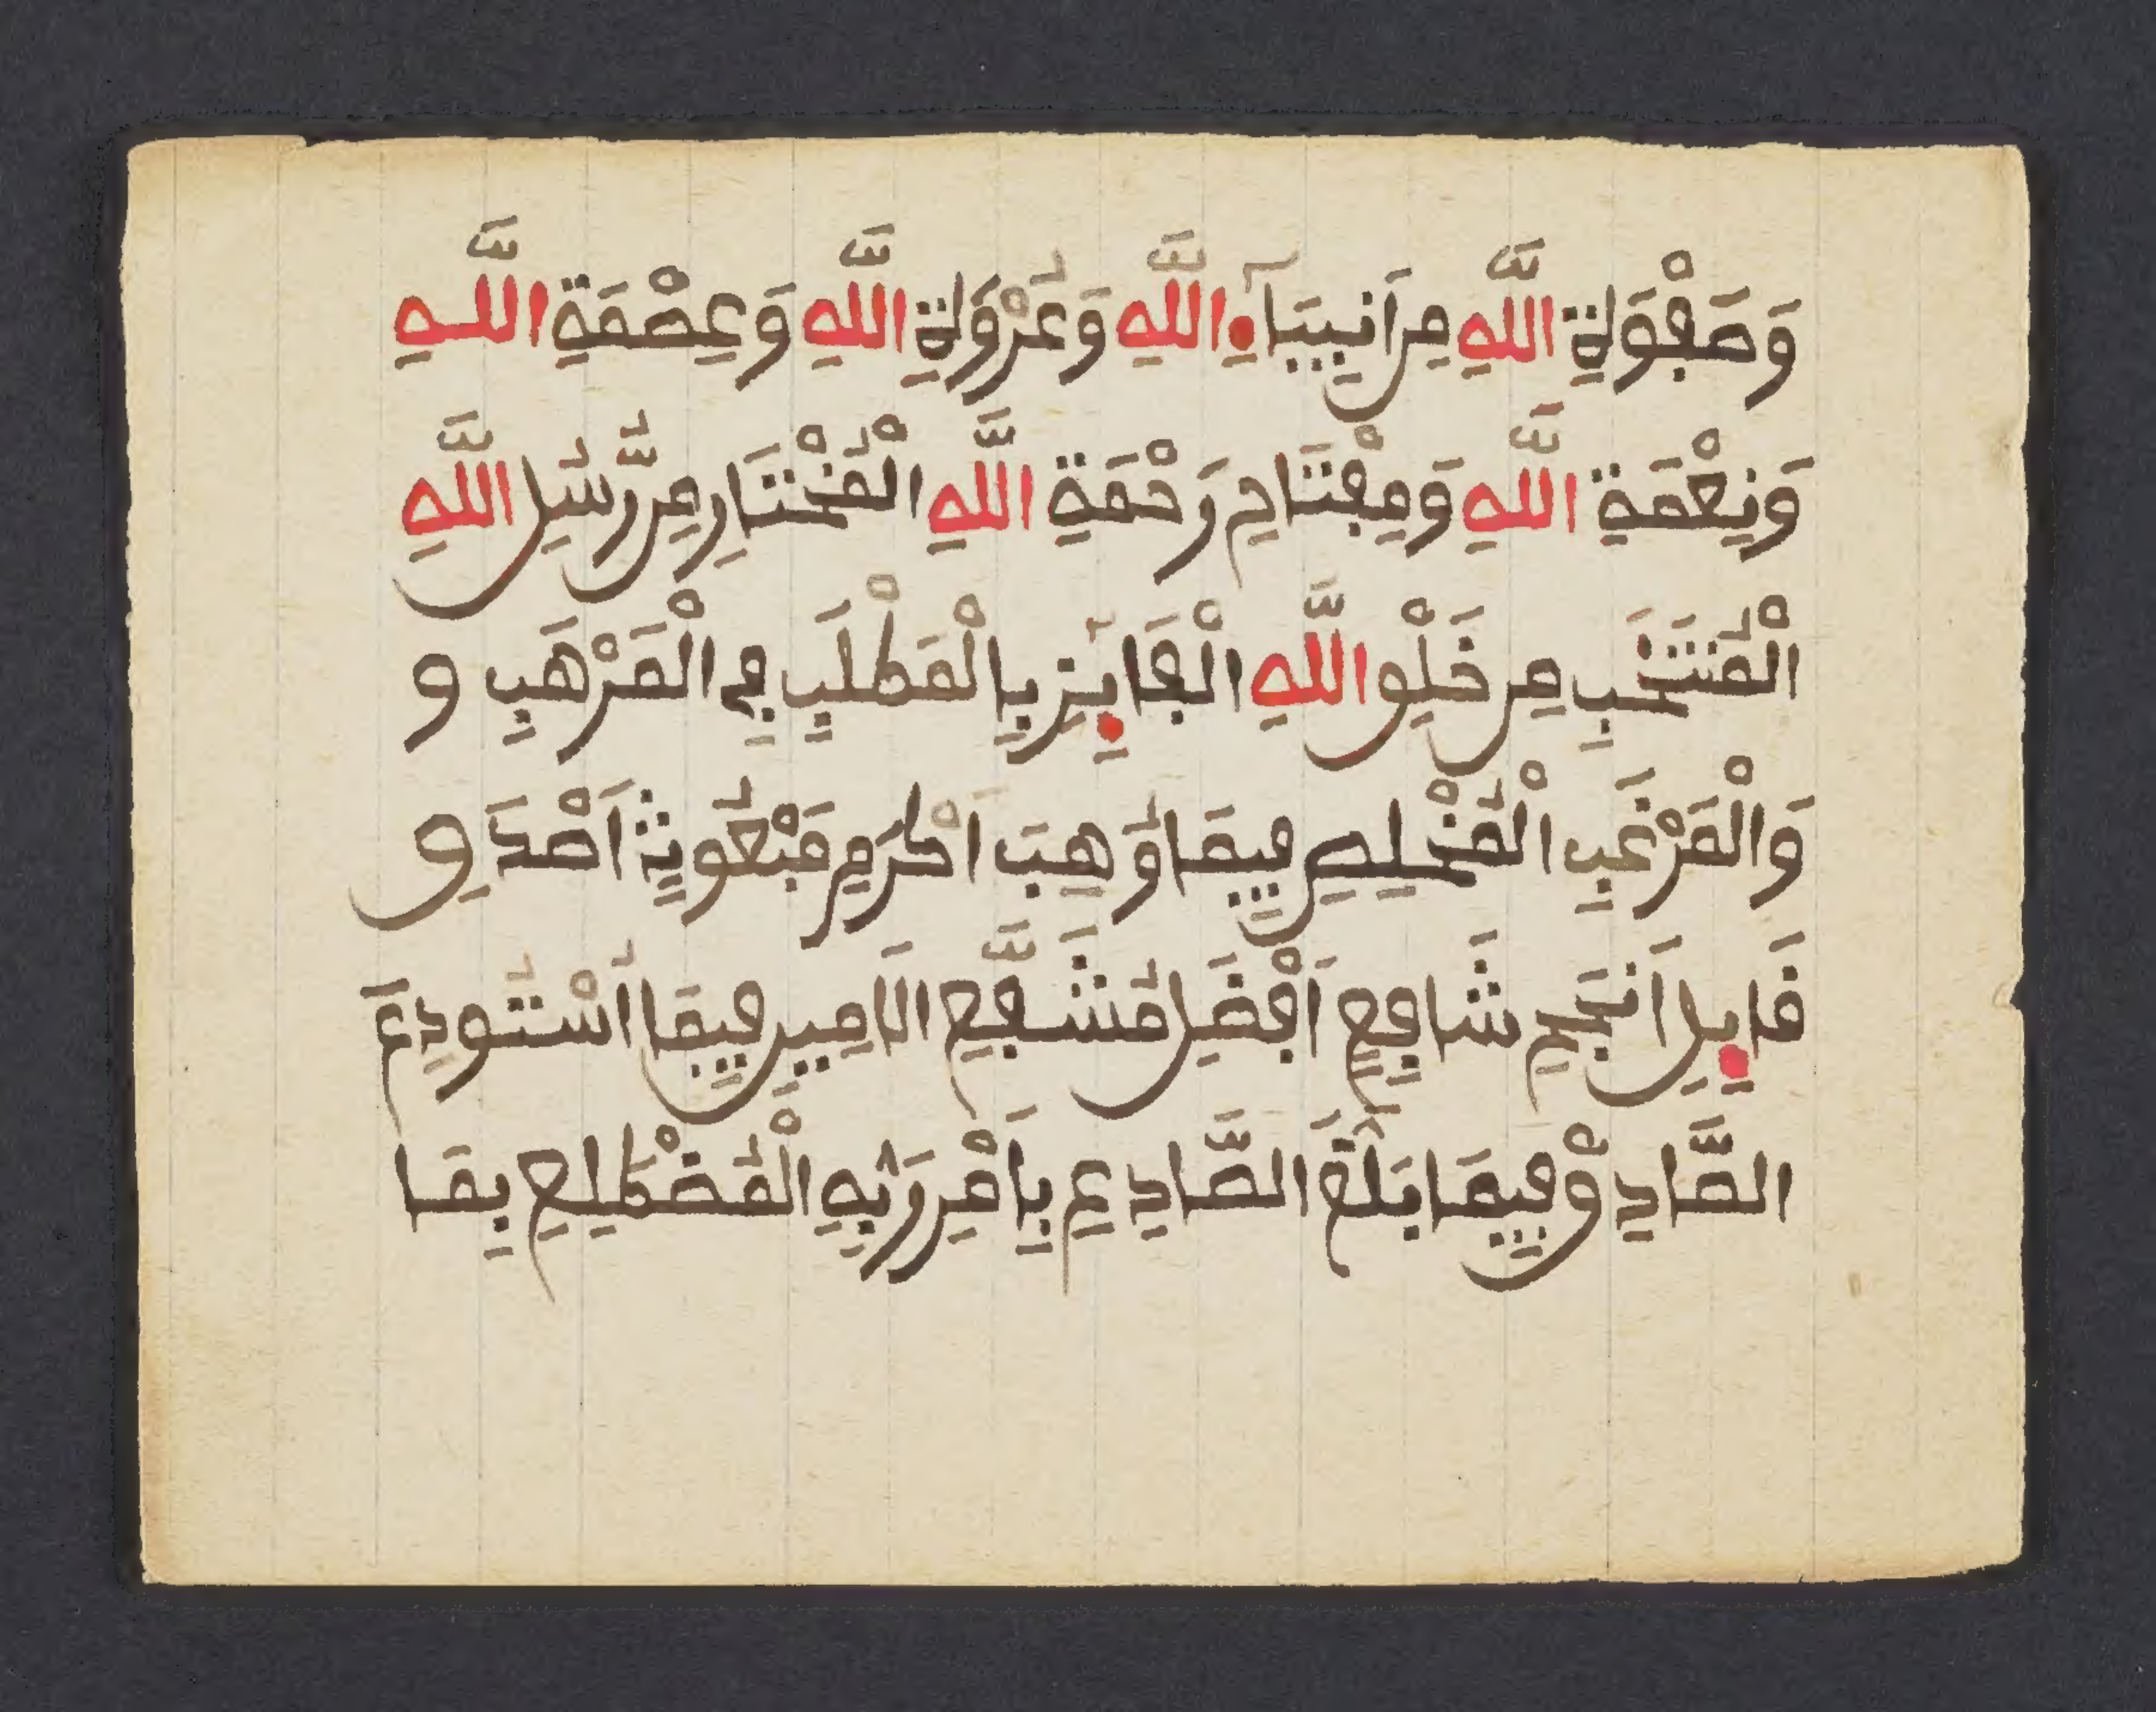 وَصَفْوَةِ اللَّهِ مِن اَنبِيَآءِ اللَّهِ وَعُرْوَةِ اللَّهِ وَعِصْمَةِ اللَّهِ
وَنِعْمَةِ اللَّهِ وَمِفْتَاحِ رَحْمَةِ اللَّهِ الْمُخْتَارِ مِن رُّسُلِ اللَّهِ
الْمُنتَخَبِ مِن خَلْقِ اللَّهِ الْفَايِزِ بِالْمَطْلَبِ فِي الْمَرْهَبِ و
وَالْمَرْغَبِ الْمُخْلِصِ فِيمَا وُهِبَ اَكْرَمِ مَبْعُوثٍ اَصْدَقِ
قَايِلٍ اَنجَحِ شَافِعٍ اَفْضَلِ مُشَفَّعٍ الَامِينِ فِيمَا اُسْتُودِعَ
الصَّادِقِ فِيمَا بَلَّغَ الصَّادِعِ بِاَمْرِ رَبِّهِ الْمُضْطَلِعِ بِمَا